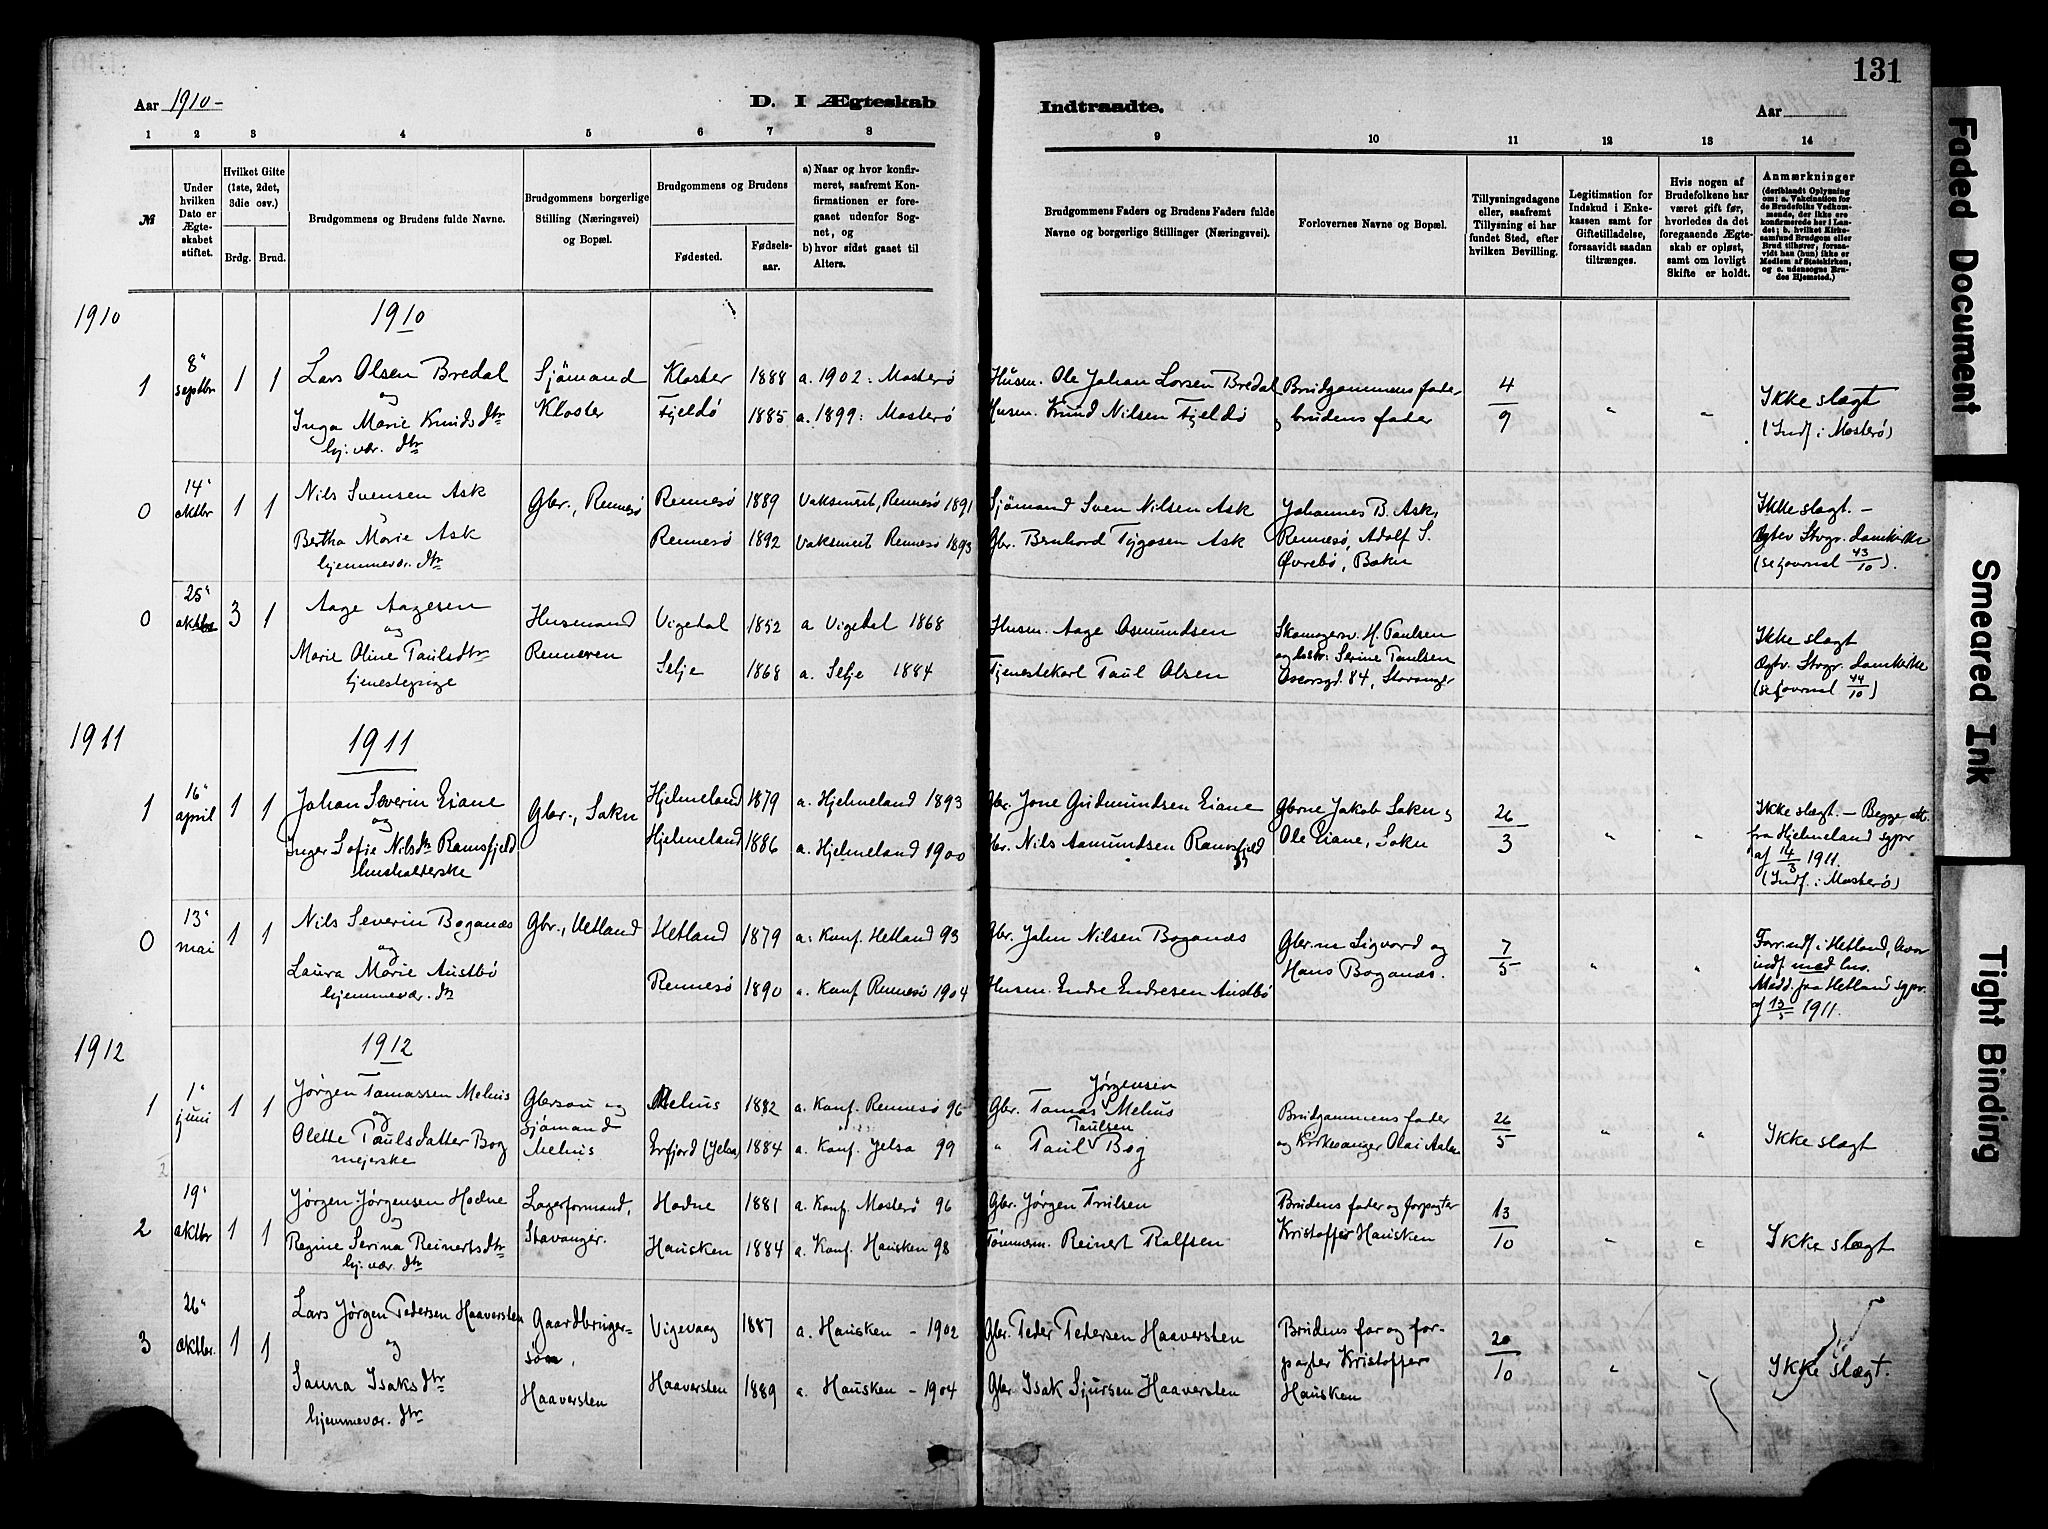 131
Aar 1910- D. I Ægteskab Indtraadte. Aar
1 2 3 4 5 6 7 8 9 10 11 12 13 14
№
Under hvilken Dato er Ægteskabet stiftet.
Hvilket Gifte (1ste, 2det, 3die osv.)
Brdg. Brud.
Brudgommens og Brudens fulde Navne.
Brudgommens borgerlige Stilling (Næringsvei) og Bopæl.
Brudgommens og Brudens
Fødested. Fødselsaar.
a) Naar og hvor konfirmeret, saafremt Konfirmationen er foregaaet udenfor Sognet, og
b) hvor sidst gaaet til Alters.
Brudgommens Faders og Brudens Faders fulde Navne og borgerlige Stillinger (Næringsvei).
Forlovernes Navne og Bopæl.
Tillysningsdagene eller, saafremt Tillysning ei har fundet Sted, efter hvilken Bevilling.
Legitimation for Indskud i Enkekassen samt for Giftetilladelse, forsaavidt saadan tiltrænges.
Hvis nogen af Brudefolkene har været gift før, hvorledes da det foregaaende Ægteskab er opløst, samt om lovligt Skifte er holdt.
Anmærkninger
(deriblandt Oplysning om: a. Vakcination for de Brudefolks Vedkommende, der ikke ere konfirmerede her i Landet; b. hvilket Kirkesamfund Brudgom eller Brud tilhører, forsaavidt han (hun) ikke er Medlem af Statskirken, og c. udensogns Brudes Hjemsted.)
1910 1910
1 8" septbr 1 1 Lars Olsen Bredal Sjömand Kloster 1888 a. 1902: Mosterö Husm. Ole Johan Larsen Bredal Brudgommens fader 4/9 " " Ikke slægt
og
Inga Marie Knudsdtr Kloster Fjeldö 1885 a. 1899: Mosterö Husm. Knud Nilsen Fjeldö og brudens fader (Indf. i Mosterö)
hj. vær. dtr
0 14" oktbr 1 1 Nils Svensen Ask Gbr., Rennesö Rennesö 1889 Vaksinert, Rennesö 1891 Sjömand Sven Nilsen Ask Johannes B. Ask, Ikke slægt. –
Bertha Marie Ask Rennesö 1892 Vaksinert Rennesö 1893 Gbr. Bernhard Tygesen Ask Rennesö, Adolf S. Ægtev. Stvgr. domkirke
hjemmevær. dtr Övrebö, Bokn (se journal 43/10).
0 25" oktbr 3 1 Aage Aagesen Husmand Vigedal 1852 a Vigedal 1868 Husm. Aage Osmundsen Skomagersv. H. Paulsen Ikke slægt
og
Marie Oline Paulsdtr Renneren Selje 1868 a. Selje 1884 Tjenestekarl Paul Olsen Serine Paulsen Ægtv. Stvgr. domkirke
tjenestepige Oscarsgd. 84, Stavanger (se journal 44/10)
1911 1911
1 16" april 1 1 Johan Severin Eiane Gbr., Sokn Hjelmeland 1879 a. Hjelmeland 1893 Gbr. Jone Gudmundsen Eiane Gbrne Jakob Sokn og 26/3 " " Ikke slægt. – Begge att.
og
Inger Sofie Nilsdtr Ramsfjeld Hjelmeland 1886 a. Hjelmeland 1900 Gbr. Nils Aamundsen Ramsfjeld Ole Eiane, Sokn fra Hjelmeland sgpr
husholderske af 14/3 1911.
(Indf. i Mosterö)
0 13" mai 1 1 Nils Severin Boganæs Gbr., Hetland Hetland 1879 a: Konf. Hetland 93 Gbr. John Nilsen Boganæs Gbr.ne Sigvard og 7/5 " " Forr. indf. i Hetland, hvor
og indf. med no.
Laura Marie Austbö Rennesö 1890 a. Konf Rennesö 1904 Husm. Endre Endresen Austbö Hans Boganæs. Medd. fra Hetland sgpr.
hjemmevær. dtr af 13/5 1911.
1912 1912
1 1" juni 1 1 Jørgen Tomassen Melhus Gbrsøn og Melhus 1882 a. Konf. Rennesö 96 Gbr. Tomas Jørgensen Melhus Brudgommens fader 26/5 " " Ikke slægt
og sjömand
Olette Paulsdatter Bog Melhus Erfjord (Jelsa) 1884 a. Konf. Jelsa 99 " Paul Paulsen Bog og Kirkesanger Olai
mejerske
2 19" oktbr 1 1 Jørgen Jørgensen Hodne Lagerformand, Hodne 1881 a. Konf. Mosterö 96 Gbr. Jørgen Trulsen Brudens fader og forpagter 13/10 " " Ikke slægt
og
Regine Serina Reinertsdtr Stavanger. Hausken 1884 a. Konf. Hausken 98 Tömmerm. Reinert Rolfsen Kristoffer Hausken
hj. vær. dtr
3 26" oktbr. 1 1 Lars Jørgen Pedersen Haaversten Gaardbruger- Vigevaag 1887 a. Hausken – 1902 Gbr. Peder Pedersen Haaversten Brudens far og for- 20/10 " " Ikke slægt.
og søn, pagter Kristoffer
Sanna Isaksdtr Haaversten Haaversten 1889 a. Hausken – 1904 Gbr. Isak Sjursen Haaversten Hausken
hjemmevær. dtr
Faded Document
Smeared Ink
Tight Binding